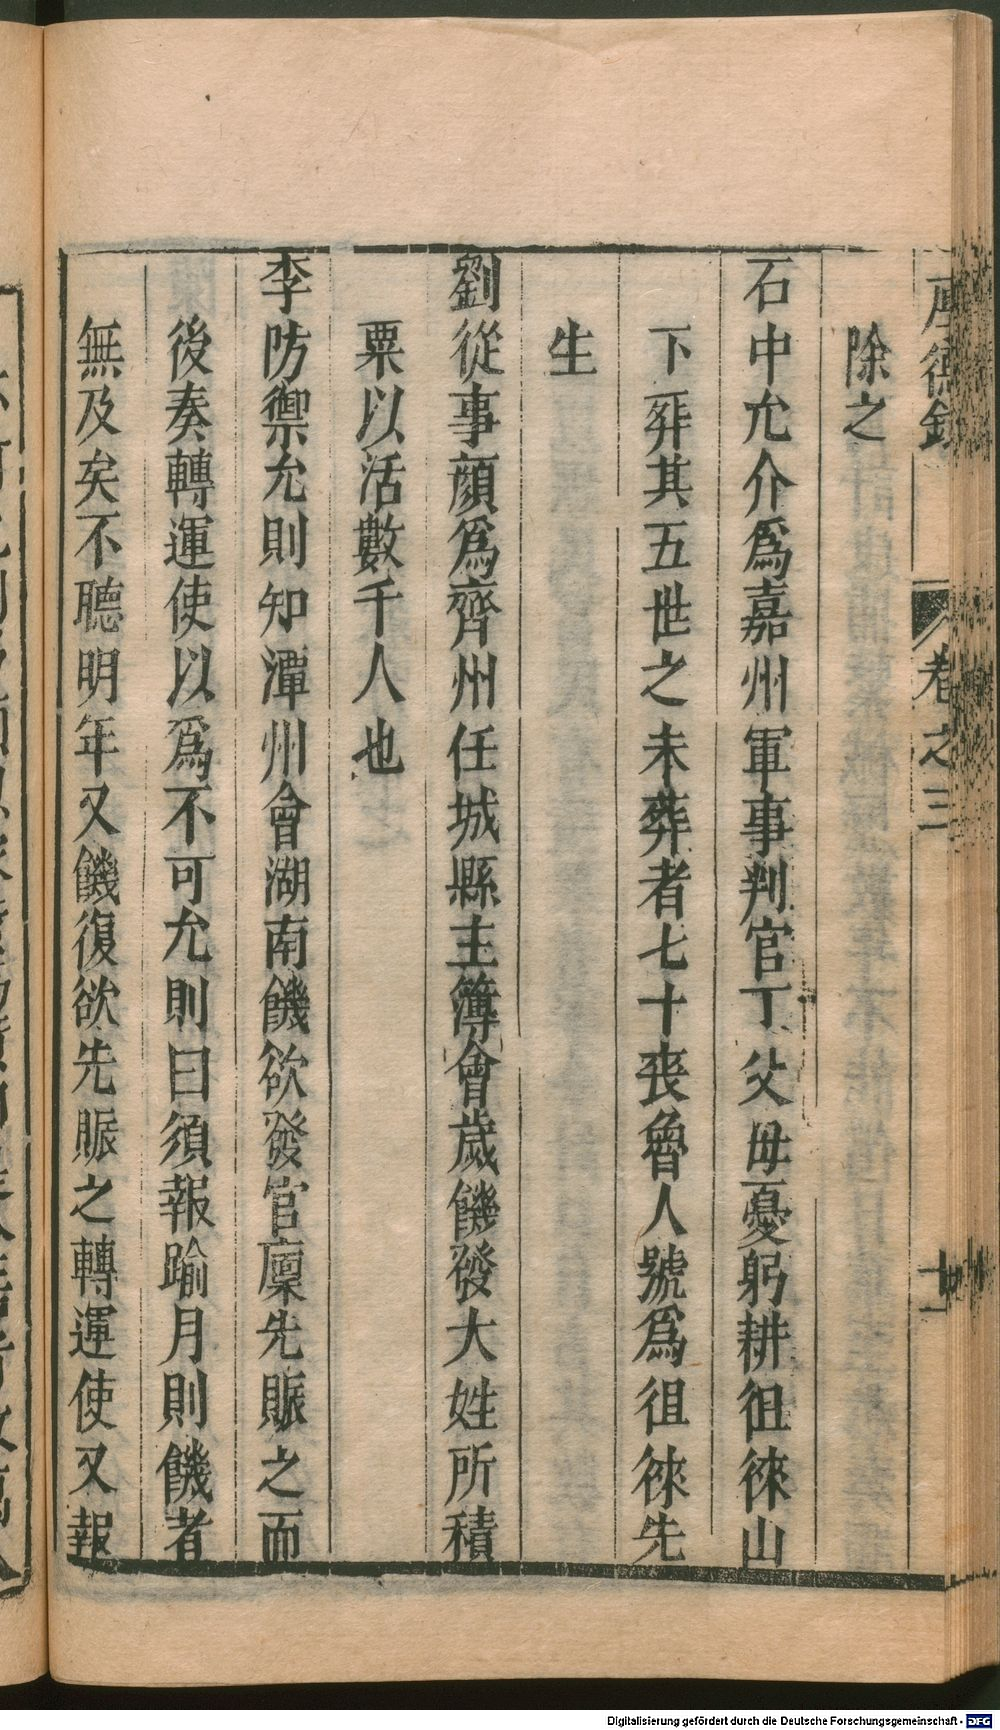 厚德錄 卷之三 十一
除之
石中允介爲嘉州軍事判官丁父母憂躬耕徂徠山
下葬其五世之未葬者七十喪魯人號爲徂徠先
生
劉從事顔爲齊州任城縣主簿會歲饑發大姓所積
粟以活數千人也
李防禦允則知潭州會湖南饑欲發官廩先賑之而
後奏轉運使以爲不可允則曰須報踰月則饑者
無及矣不聽明年又饑復欲先賑之轉運使又報
Digitalisierung gefördert durch die Deutsche Forschungsgemeinschaft - DFG